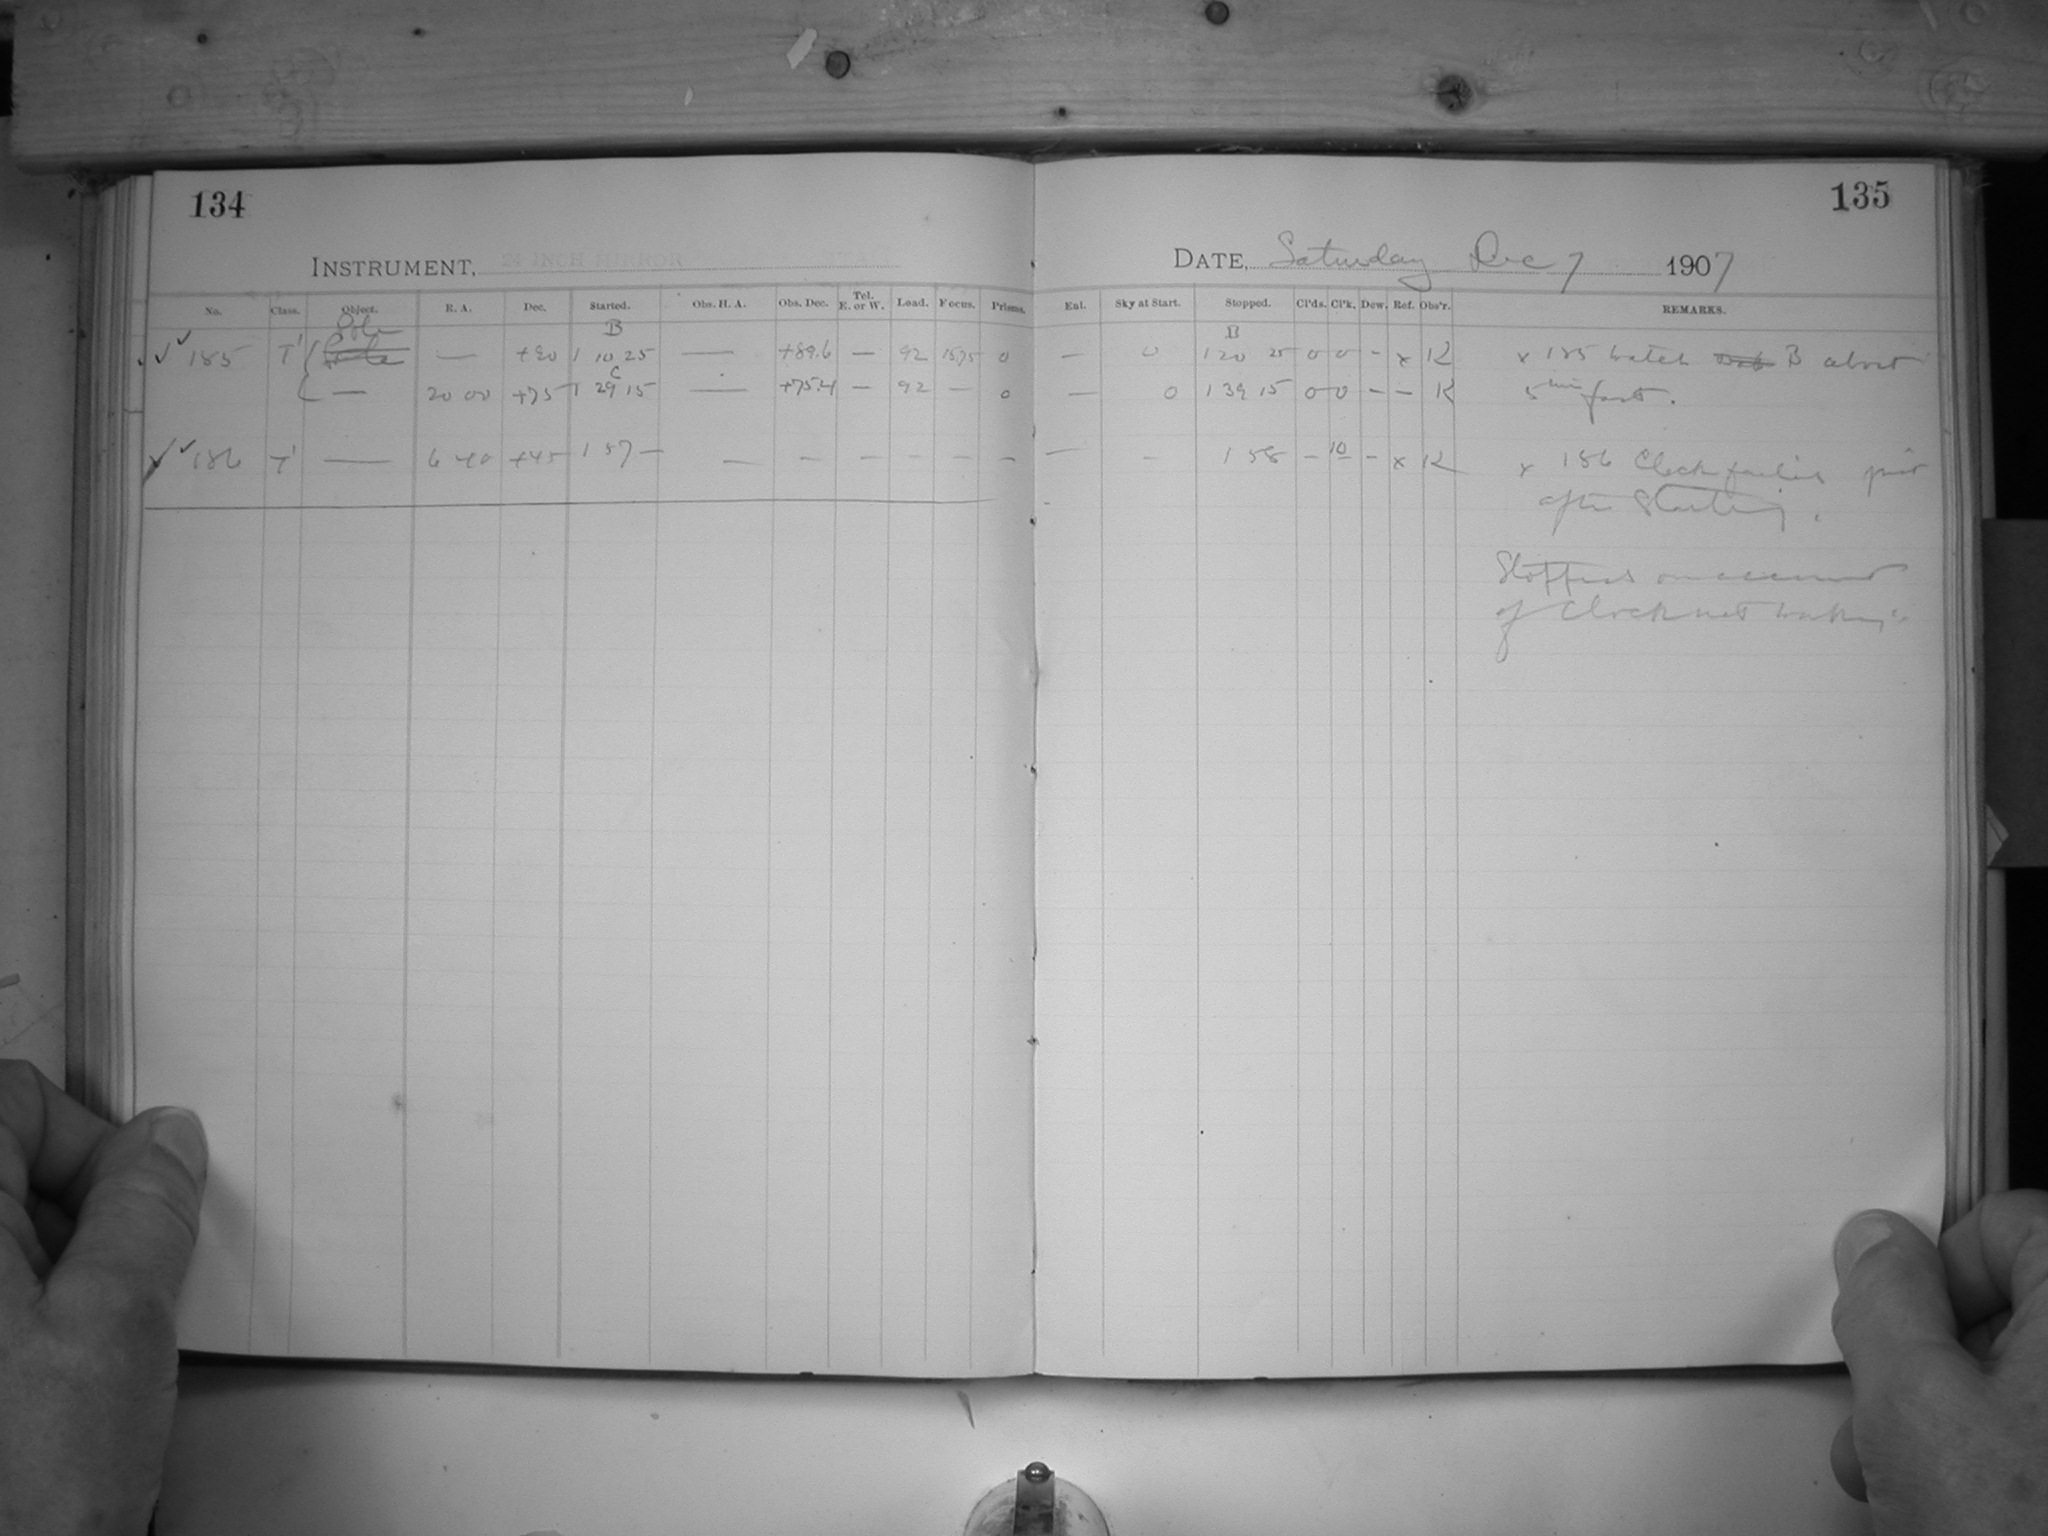 134
135
INSTRUMENT, 24 INCH MIRROR
DATE, Saturday Dec 7 1907
No. Class. Object. R. A. Dec. Started. Obs. H. A. Obs. Dec. Tel. E. or W. Load. Focus. Prisms. Eal. Sky at Start. Stopped. Cl'ds. Cl'k. Dew. Ref. Obs'r. REMARKS.
Pole B B
✓ ✓ 185 T' — +90 1 10 25 — +89.6 — 92 15.75 0 — 0 1 20 25 0 0 - x K x 185 Watch B about
C
— 20 00 +75 1 29 15 — +75.4 — 92 — 0 — 0 1 39 15 0 0 - - K 5 min fast.
✓ ✓ 186 T' — 6 40 +45 1 57 — — — — — — — — — 1 58 — 10 - x K x 186 Clock failed just
after Starting.
Stopped on account
of Clock not working.